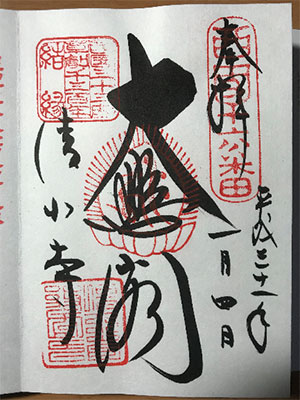 奉拝
西国十六番
平成三十一年
一月四日
大悲閣
結縁
清水寺